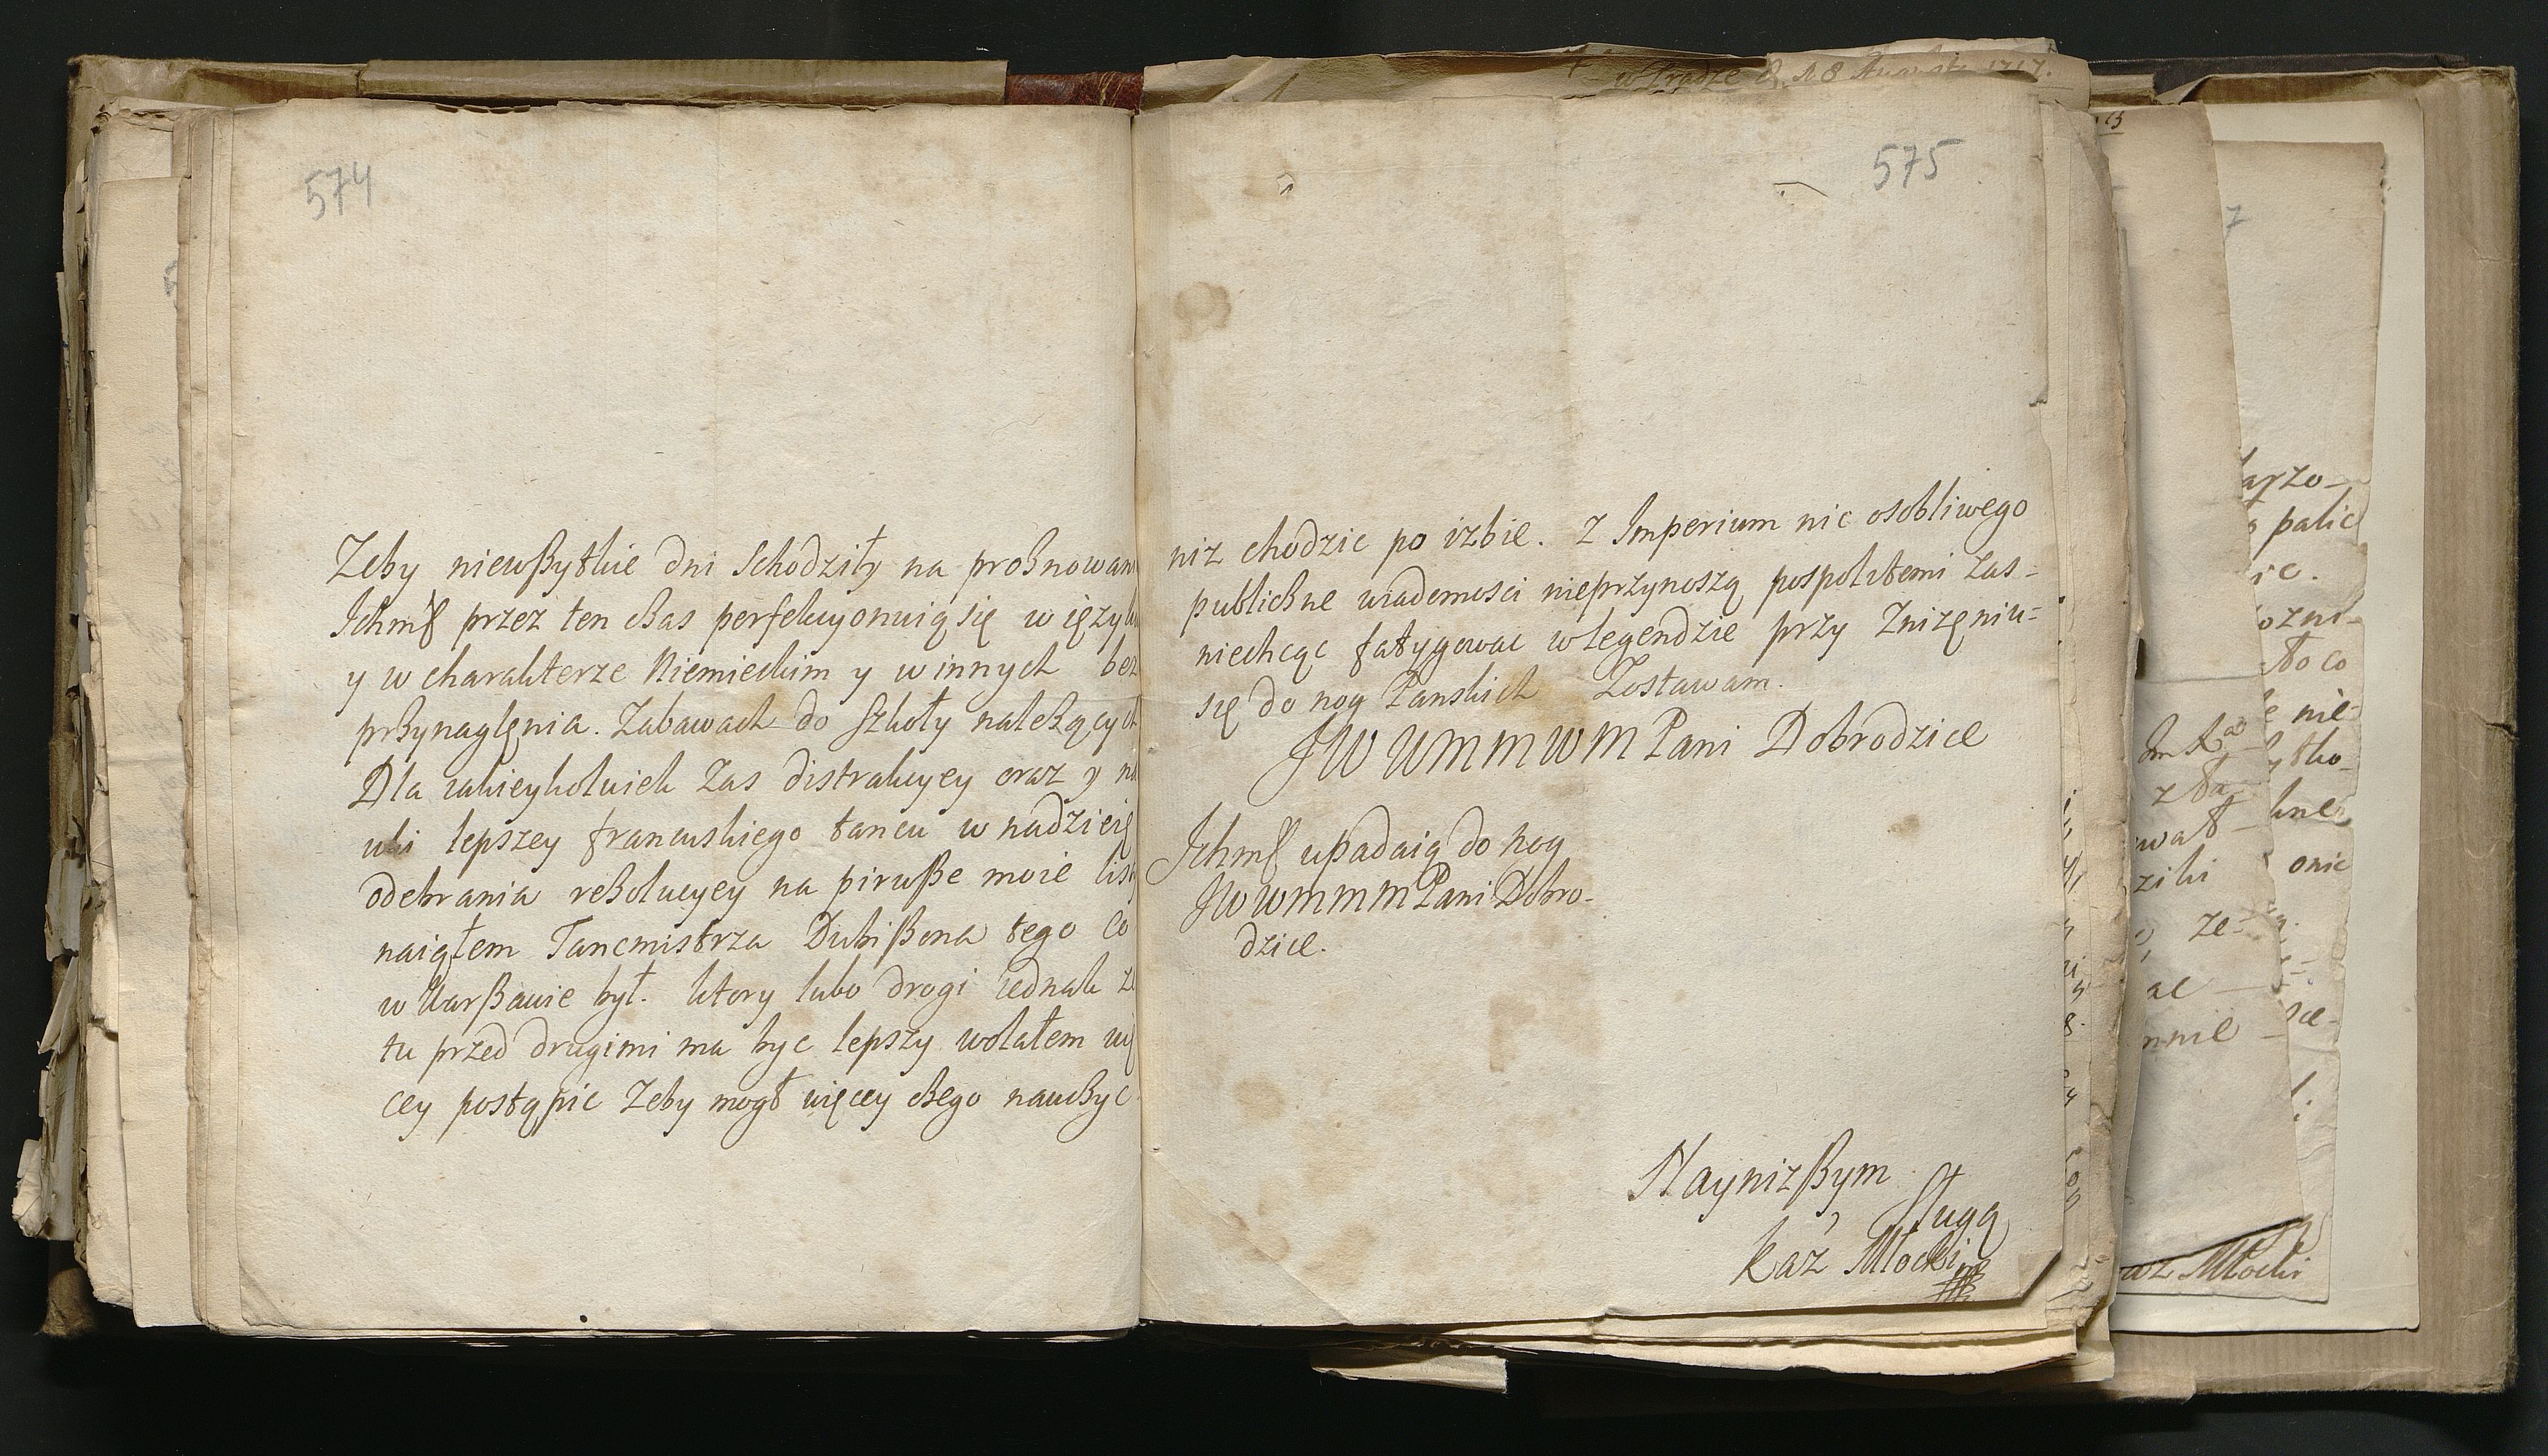 574
Zeby niewßytkie dni Schodziły na proßnowan
Ichmß przez ten cßas perfekcyonuią się w ięzyk
y w charakterze Niemieckim y w innych bez
przynaglęnia. Zabawach do Szkoły należących
Dla iakieykolwiek Zas distrakcyey oraz y na
uki lepszey francuskiego tancu w nadzieię
odebrania reßolucyey na pirwße moie list
naiąłem Tancmistrza Dubißona tego co
w Warßawie był. ktory lubo drogi iednak ze
tu przed drugimi ma byc lepszy wolałem wię
cey postąpic Zeby mogł więcey cßego naucßyc
575
niz chodzic po izbie. Z Imperium nic osobliwego
publicßne wiadomosci nieprzynoszą, pospolitemi Zas-
niechcąc fatygowac w legendzie przy Zniżęniu-
się do nog Panskich Zostawam.
JW WMMWM Pani Dobrodzice
Ichmß upadaią do nog
JWWMMM Pani Dobro-
dzice.
Nayniżßym
Sługą
Kaz Młocki
w Pradze d. 18 Augusti 1717.
arzo-
palic
ic.
ozni-
to co
e nie-
ytko-
kne
onic
z ta
wał
ziki
ze-
ac
mnie
Młocki